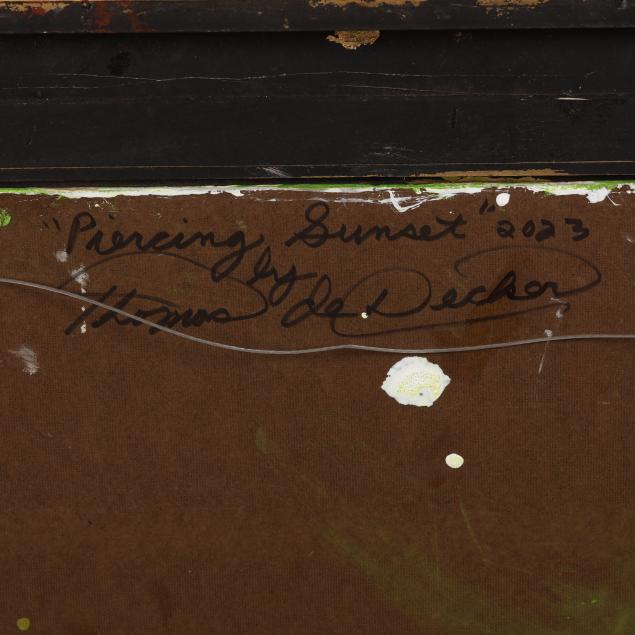 "Piercing Sunset" 2023
by
Thomas de Decker